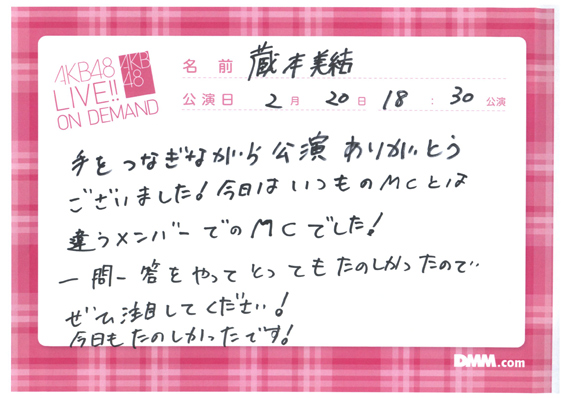 AKB48
LIVE!!
ON DEMAND
AKB
48
名前 蔵本美結
公演日 2月20日 18:30公演
手をつなぎながら公演ありがとう
ございました!今日はいつものMCとは
違うメンバーでのMCでした!
一問一答をやってとってもたのしかったので
ぜひ注目してください!
今日もたのしかったです!
DMM.com